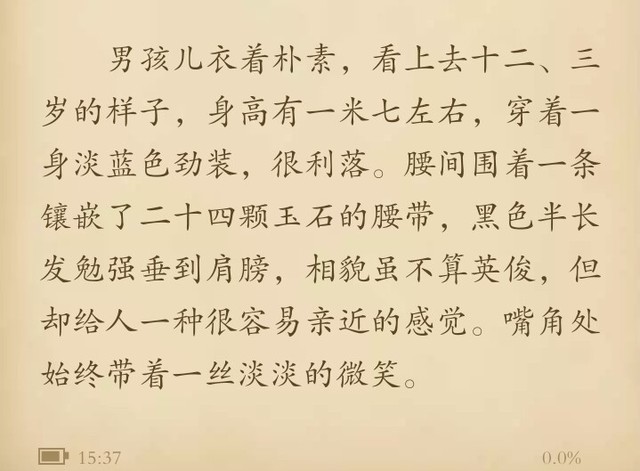 男孩儿衣着朴素，看上去十二、三
岁的样子，身高有一米七左右，穿着一
身淡蓝色劲装，很利落。腰间围着一条
镶嵌了二十四颗玉石的腰带，黑色半长
发勉强垂到肩膀，相貌虽不算英俊，但
却给人一种很容易亲近的感觉。嘴角处
始终带着一丝淡淡的微笑。
15:37 0.0%